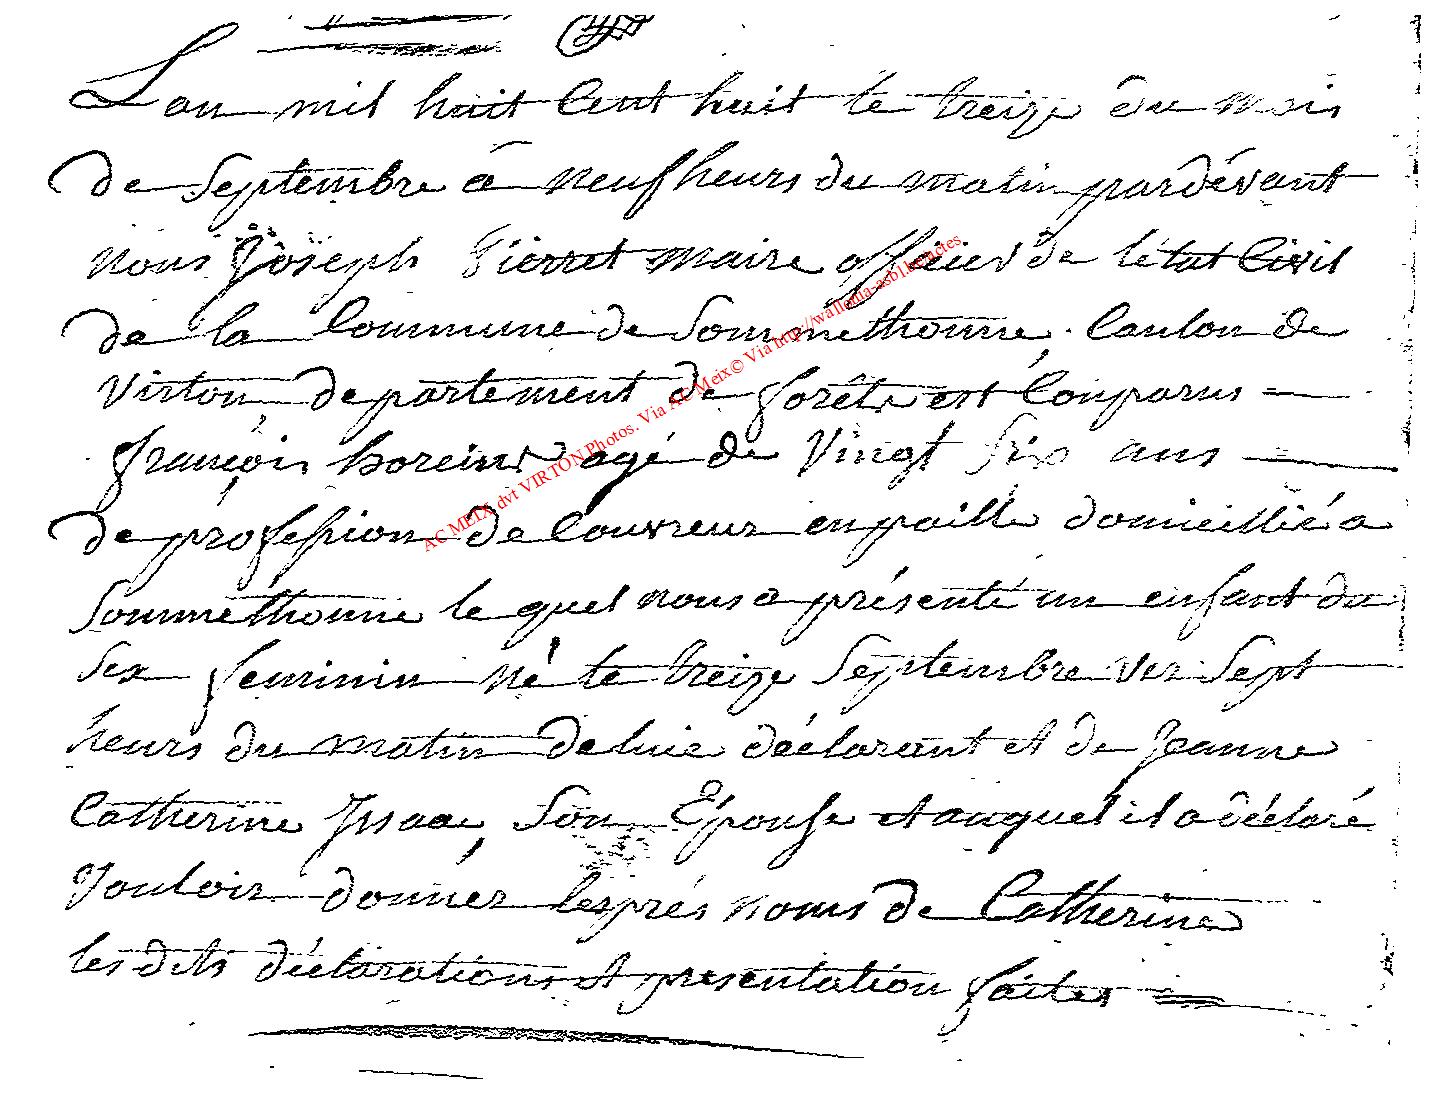 L'an mil huit Cent huit le treize du mois
de Septembre a neuf heurs du matin pardévant
nous Joseph Pierret maire officier de létat Civil
de la Commune de Sommethonne Canton de
Virton departement de forêts est Comparus
françois horeins agé de Vingt Six ans
de profession de Couvreur enpaille domicillié a
Sommethonne le quel nous a présenté un enfant du
Sex feminin né le treize Septembre ver Sept
heurs du matin deluie déclarant et de Jeanne
Catherine Issac, Son Epouse et auquel il a déclaré
Vouloir donner lesprés noms de Catherine
les dits déclarations et presentation faites
AC MEIX dvt VIRTON Photos. Via AC Meix© Via http://wallonia-asbl.be/actes.